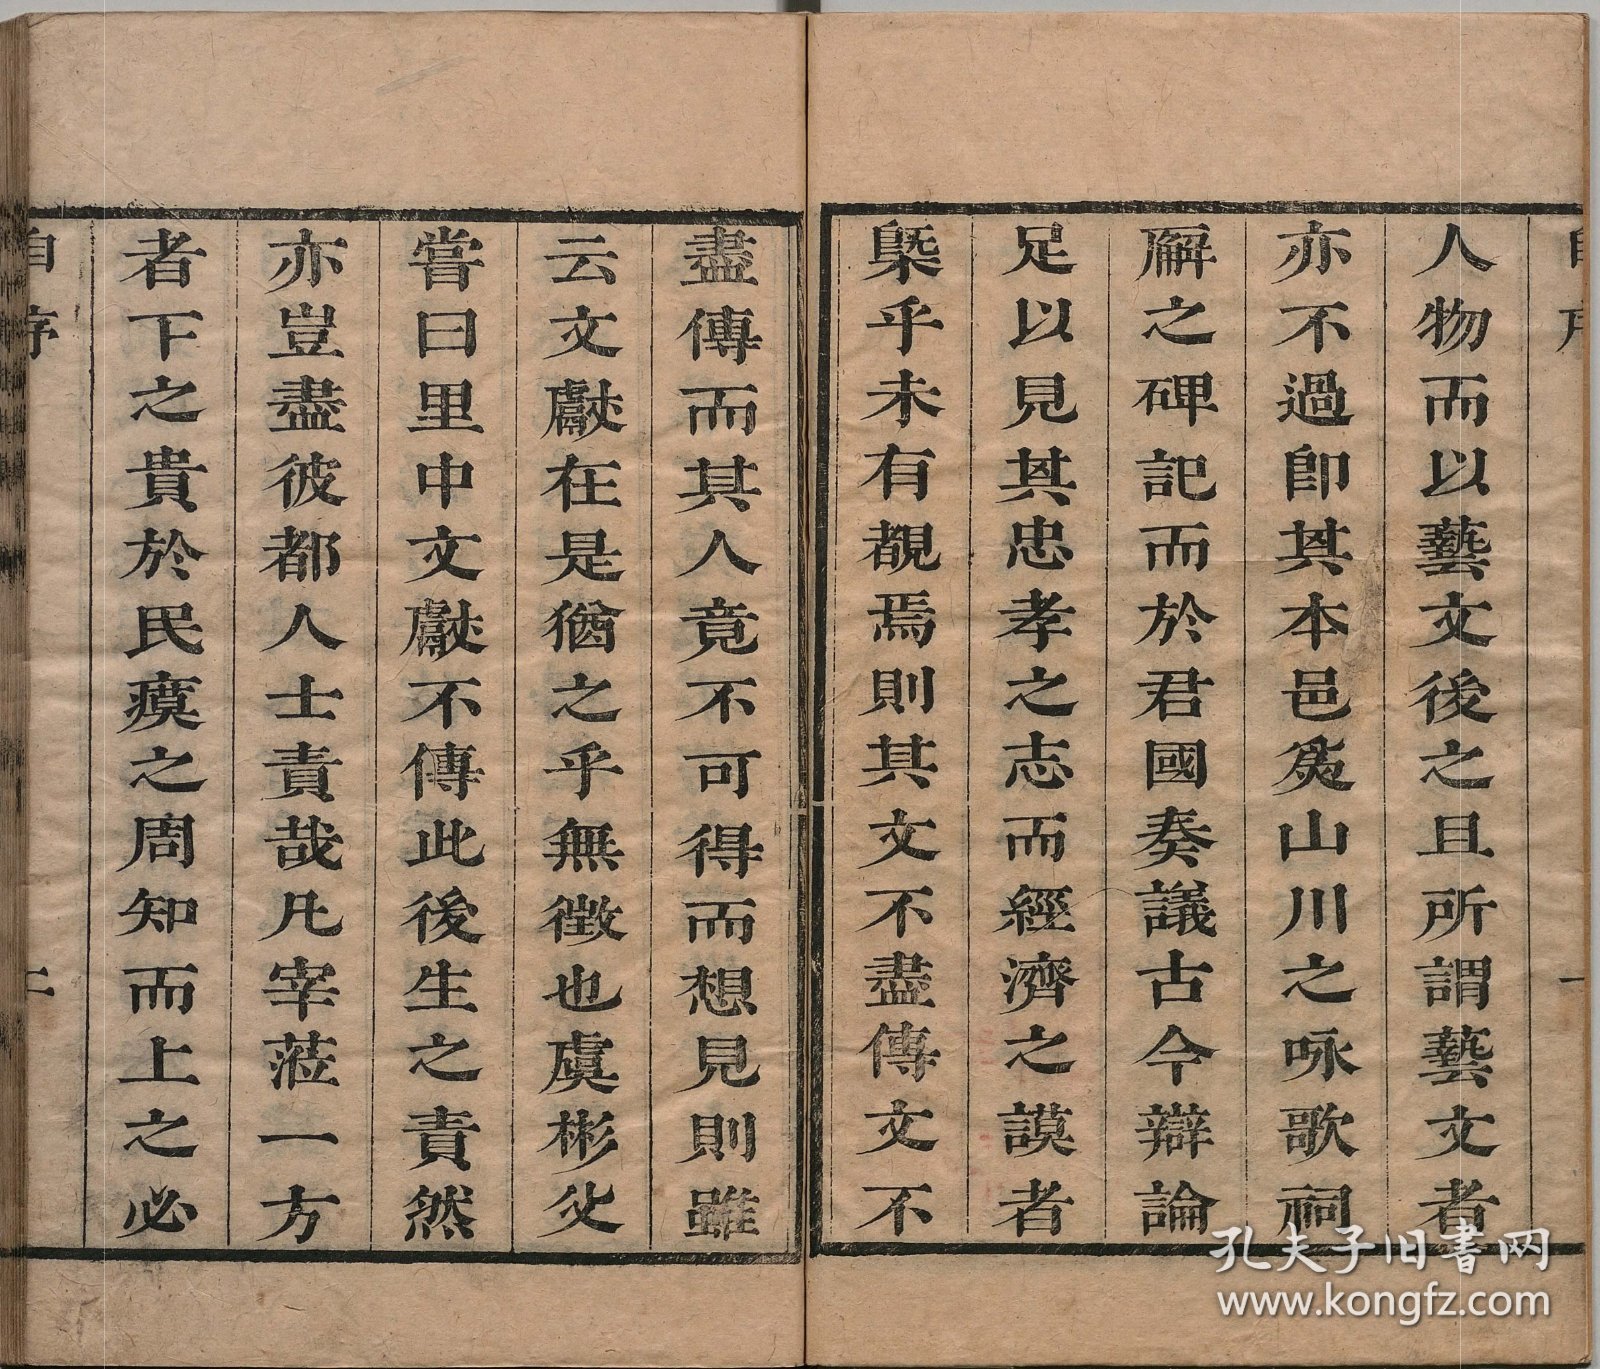 自序 一
人物而以藝文後之且所謂藝文者
亦不過即其本邑山川之咏歌祠
廨之碑記而於君國奏議古今辯論
足以見其忠孝之志而經濟之謨者
槩乎未有覩焉則其文不盡傳文不
盡傳而其人竟不可得而想見則雖
云文獻在是猶之乎無徵也虞彬父
嘗曰里中文獻不傳此後生之責然
亦豈盡彼都人士責哉凡宰蒞一方
者下之貴於民瘼之周知而上之必
自序
孔夫子旧书网
www.kongfz.com